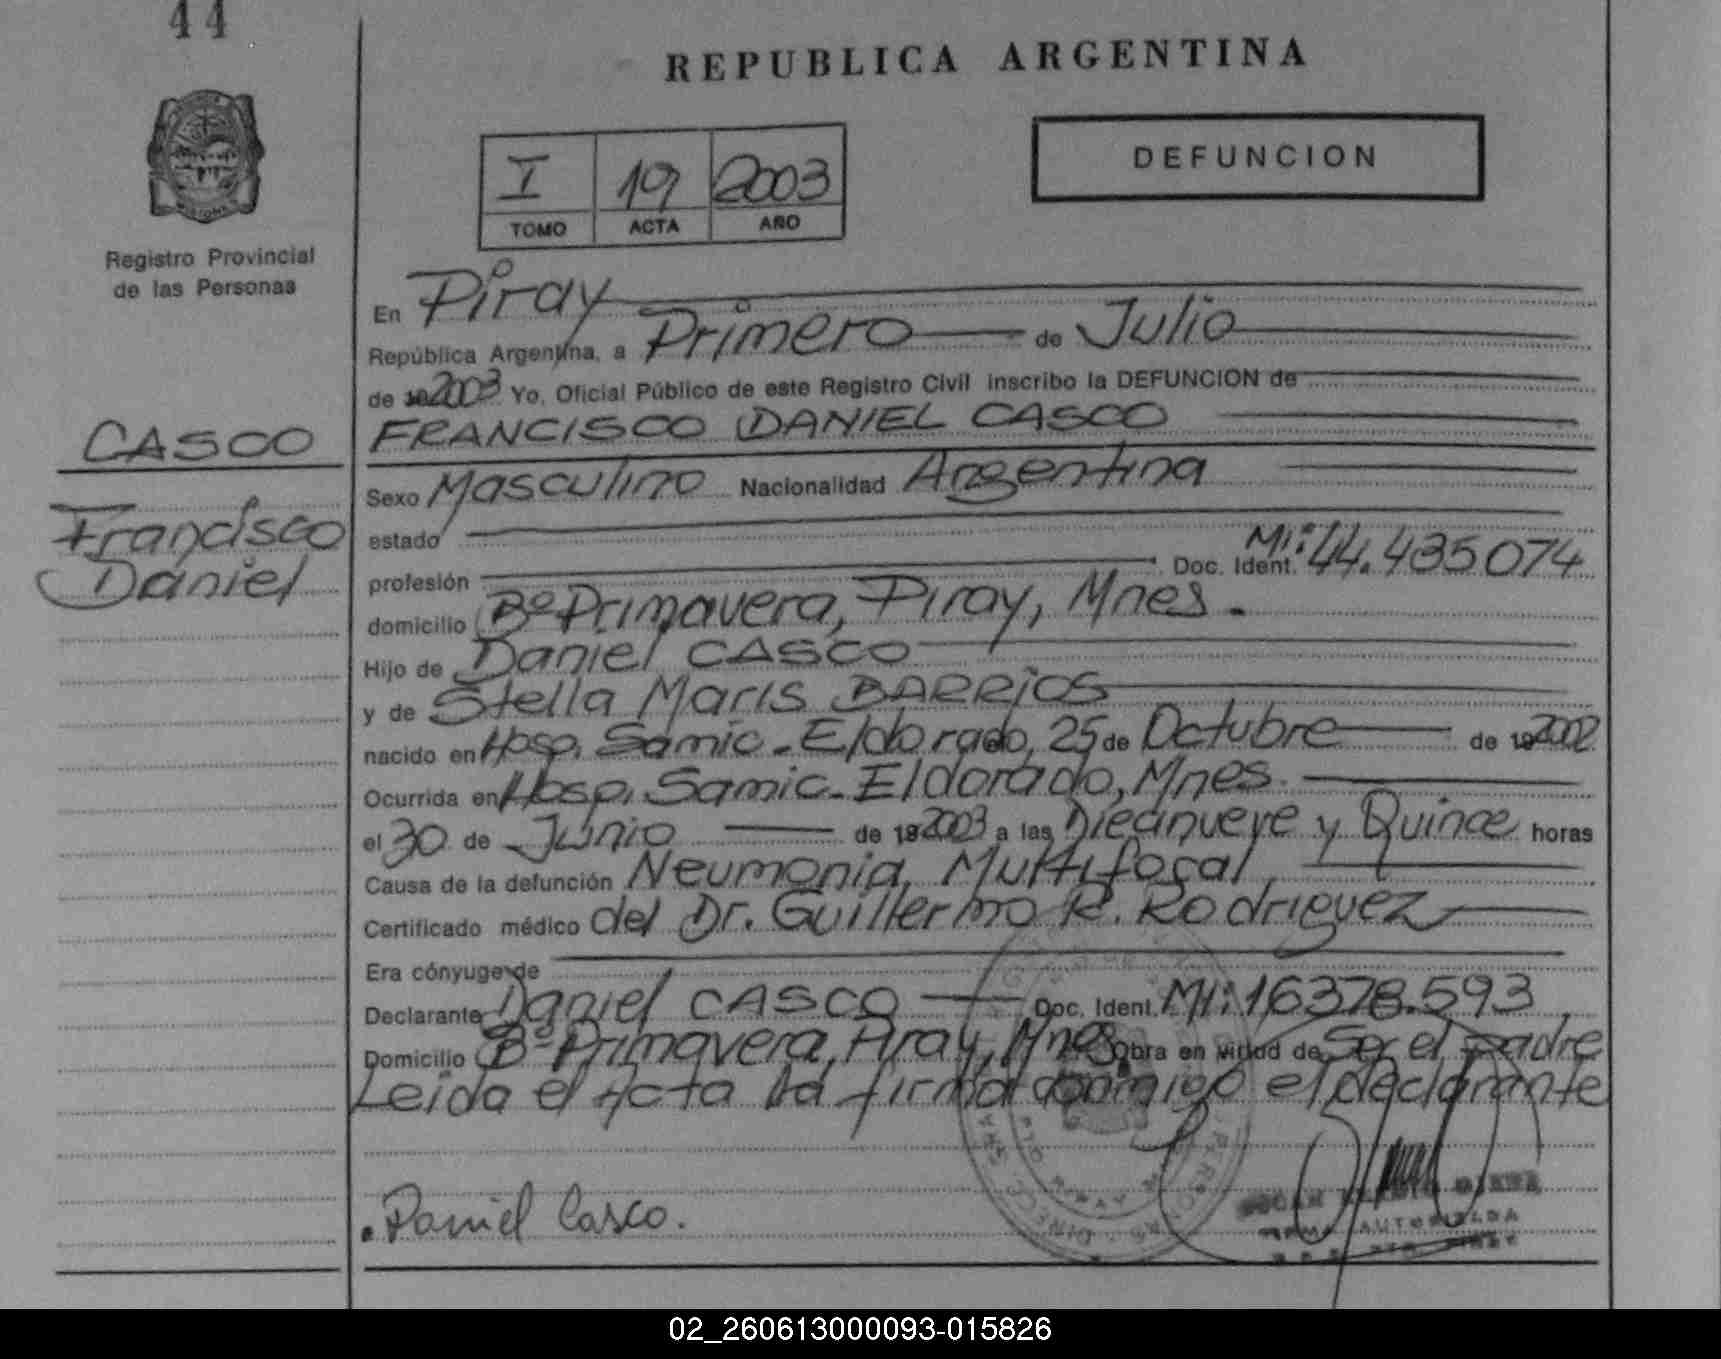 44
REPUBLICA ARGENTINA
I 19 2003
TOMO ACTA AÑO
DEFUNCION
Registro Provincial
de las Personas
CASCO
Francisco
Daniel
En Piray
República Argentina, a Primero de Julio
de 19 2003 Yo, Oficial Público de este Registro Civil inscribo la DEFUNCION de
FRANCISCO DANIEL CASCO
Sexo Masculino Nacionalidad Argentina
estado
profesión Doc. Ident. MI: 44.435074
domicilio Bº Primavera, Piray, Mnes.
Hijo de Daniel CASCO
y de Stella Maris BARRIOS
nacido en Hosp. Samic - Eldorado, 25 de Octubre de 19 2002
Ocurrida en Hosp. Samic - Eldorado, Mnes.
el 30 de Junio de 19 2003 a las Diecinueve y Quince horas
Causa de la defunción Neumonia Multifocal
Certificado médico del Dr. Guillermo R. Rodriguez
Era cónyuge de
Declarante Daniel CASCO Doc. Ident. MI: 16378.593
Domicilio Bº Primavera, Piray, Mnes Obra en virtud de Ser el padre
Leida el Acta la firma conmigo el declarante
Daniel Casco.
FIRMA AUTORIZADA
02_260613000093-015826